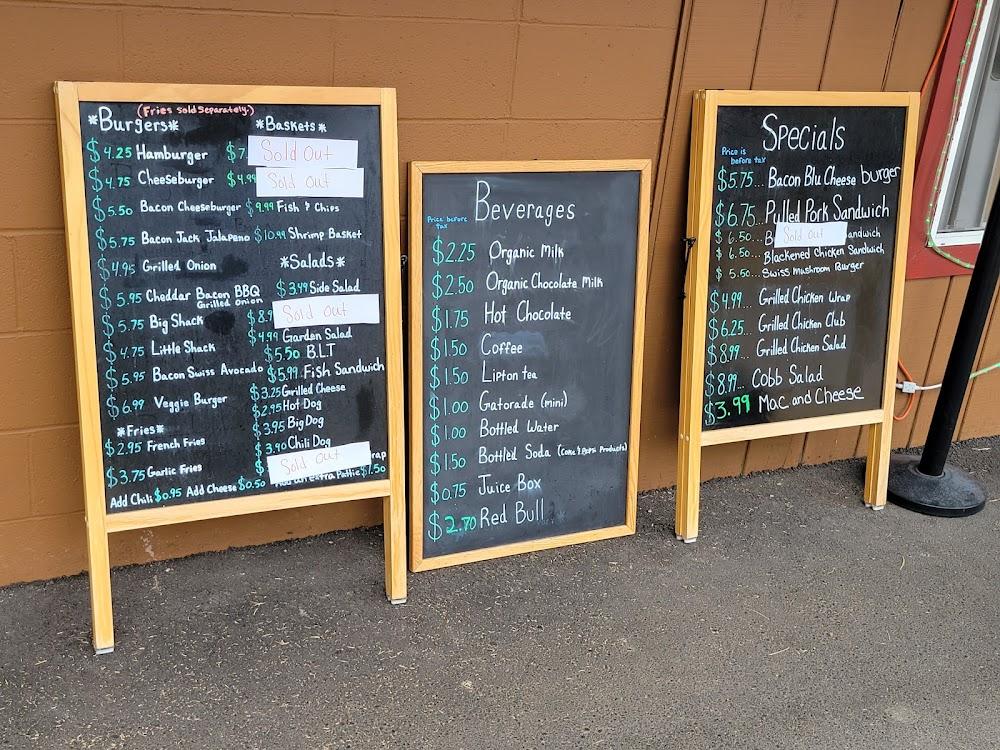 (Fries sold separately.)
*Burgers*
$4.25 Hamburger
$4.75 Cheeseburger
$5.50 Bacon Cheeseburger
$5.75 Bacon Jack Jalapeno
$4.95 Grilled Onion
$5.95 Cheddar Bacon BBQ
Grilled onion
$5.75 Big Shack
$4.75 Little Shack
$5.95 Bacon Swiss Avocado
$6.99 Veggie Burger
*Fries*
$2.95 French Fries
$3.75 Garlic Fries
*Baskets*
$7. Sold Out
$4.99 Sold Out
$9.99 Fish & Chips
$10.99 Shrimp Basket
*Salads*
$3.49 Side Salad
$8.9 Sold out
$4.99 Garden Salad
$5.50 B.L.T
$5.99 Fish Sandwich
$3.25 Grilled Cheese
$2.95 Hot Dog
$3.95 Big Dog
$3.90 Chili Dog
$ Sold out rap
Add Chili $0.95 Add Cheese $0.50 Add an extra Pattie $1.50
Beverages
Price before
tax
$2.25 Organic Milk
$2.50 Organic Chocolate Milk
$1.75 Hot Chocolate
$1.50 Coffee
$1.50 Lipton tea
$1.00 Gatorade (mini)
$1.00 Bottled Water
$1.50 Bottled Soda (Coke & Pepsi Products)
$0.75 Juice Box
$2.70 Red Bull
Specials
Price is
before tax
$5.75... Bacon Blu Cheese burger
$6.75... Pulled Pork Sandwich
$6.50... B Sold out andwich
$6.50... Blackened Chicken Sandwich
$5.50... Swiss Mushroom Burger
$4.99... Grilled Chicken Wrap
$6.25... Grilled Chicken Club
$8.99... Grilled Chicken Salad
$8.99... Cobb Salad
$3.99 Mac and Cheese